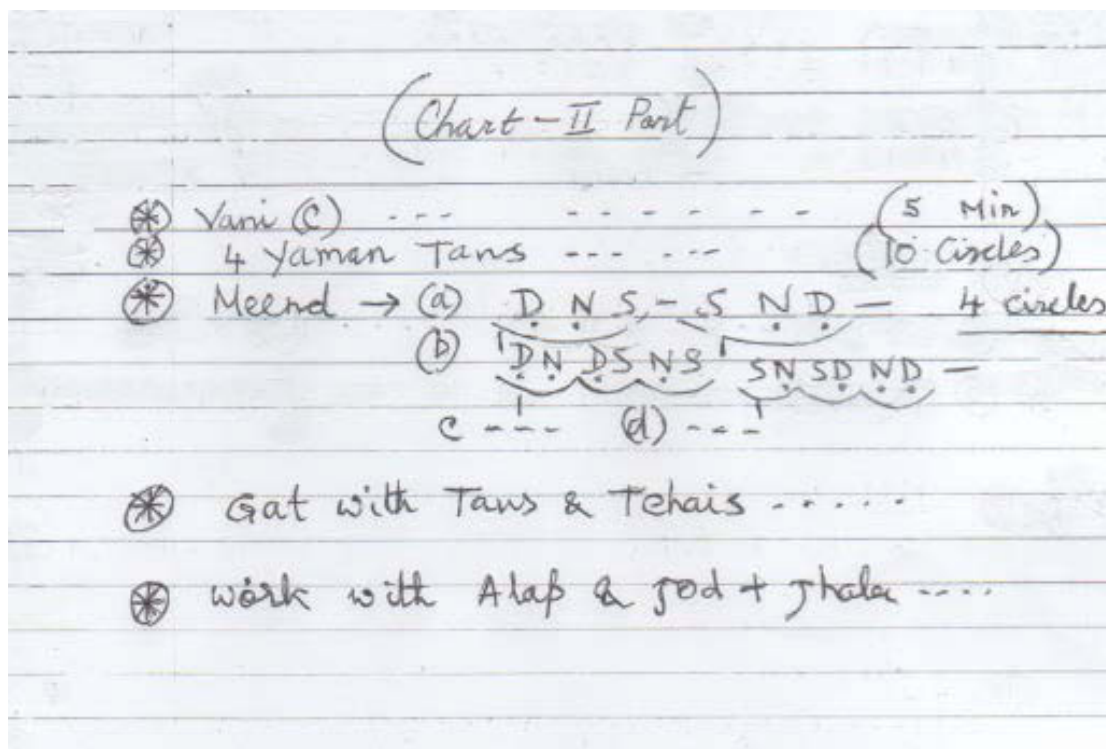 (Chart - II Part)
⊛ Vani (C) --- - - - - - - (5 Min)
⊛ 4 Yaman Tans --- --- (10 Circles)
⊛ Meend → (a) Ḍ Ṇ S, - S Ṇ Ḍ — 4 circles
(b) ḌṆ ḌS ṆS SṆ SḌ ṆḌ —
C ---- (d) ---
⊛ Gat with Tans & Tehais ......
⊛ work with Alap & Jod + Jhala ----